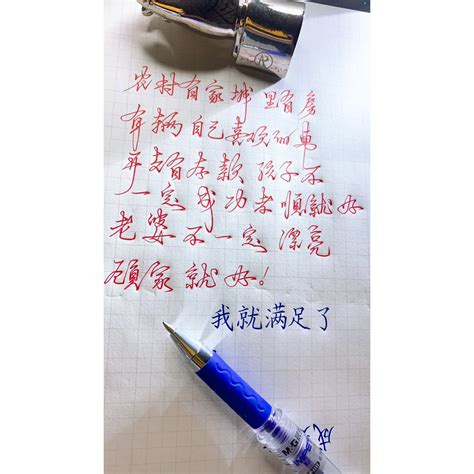 农村有家城里有房
有辆自己喜欢的車
开支有存款孩子不
一定成功孝順就好
老婆不一定漂亮
顾家就好!
我就满足了
M&G
成
®